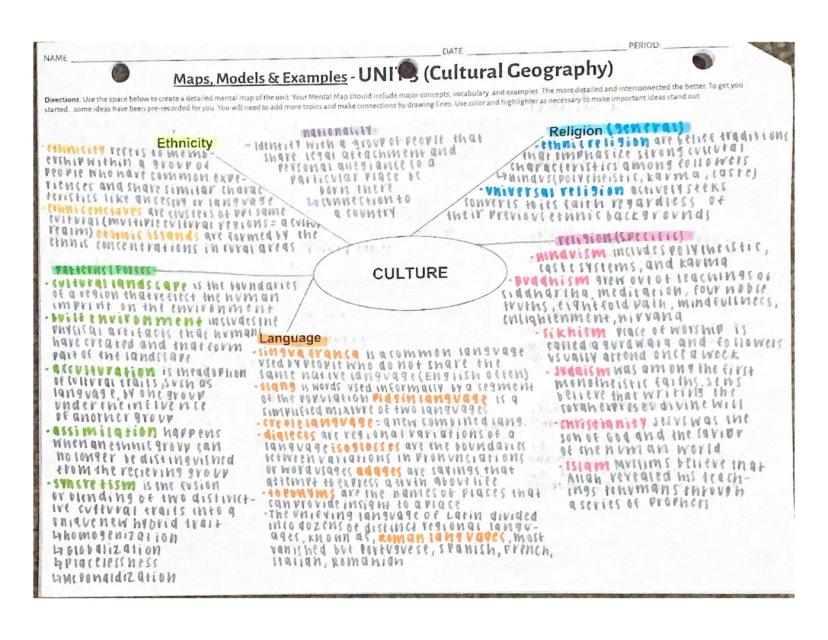 NAME DATE PERIOD
Maps, Models & Examples - UNIT 3 (Cultural Geography)
Directions: Use the space below to create a detailed mental map of the unit. Your Mental Map should include major concepts, vocabulary, and examples. The more detailed and interconnected the better. To get you
started, some ideas have been pre-recorded for you. You will need to add more topics and make connections by drawing lines. Use color and highlighter as necessary to make important ideas stand out.
Ethnicity
· ethnicity refers to memb-
ership within a group of
people who have common expe-
riences and share similar charac-
teristics like ancestry or language
· ethnic enclaves are clusters of ppl same
cultural (multiple cultural regions = a cultural
realm) ethnic islands are formed by the
ethnic concentrations in rural areas
nationality
- Identity with a group of people that
share legal attachment and
personal allegiance to a
particular place bc
born there
↳ connection to
a country
Religion (general)
· ethnic religion are belief traditions
that emphasize strong cultural
characteristics among followers
↳ hindus (polytheistic, karma, caste)
· universal religion actively seeks
converts to its faith regardless of
their previous ethnic backgrounds
CULTURE
religion (specific)
· Hinduism includes polytheistic,
caste systems, and karma
· Buddhism grew out of teachings of
siddhartha, meditation, four noble
truths, eight fold path, mindfullness,
enlightenment, nirvana
· Sikhism place of worship is
called a gurdwara and followers
usually attend once a week
· Judaism was among the first
monotheistic faiths. Jews
believe that writing the
torah exposes divine will
· christianity Jesus was the
son of God and the savior
of the human world
· Islam Muslims believe that
Allah revealed his teach-
ings to humans through
a series of prophets
Patterns/Forces
· cultural landscape is the boundaries
of a region that reflect the human
imprint on the environment
· built environment includes the
physical artifacts that humans
have created and that form
part of the landscape
· acculturation is the adoption
of cultural traits, such as
language, by one group
under the influence
of another group
· assimilation happens
when an ethnic group can
no longer be distinguished
from the recieving group
· syncretism is the fusion
or blending of two distinct-
ive cultural traits into a
unique new hybrid trait
↳ homogenization
↳ Globalization
↳ Placelessness
↳ McDonaldization
Language
· lingua franca is a common language
used by people who do not share the
same native language (English often)
· slang is words used informally by a segment
of the population Pidgin language is a
simplified mixture of two languages
· creole language = a new combined lang.
· dialects are regional variations of a
language isoglosses are the boundaries
between variations in pronunciations
or word usages adages are sayings that
attempt to express a truth about life
· toponyms are the names of places that
can provide insight to a place
· The unifying language of Latin divided
into dozens of distinct regional langu-
ages, known as, roman languages, most
vanished but Portuguese, Spanish, French,
Italian, Romanian